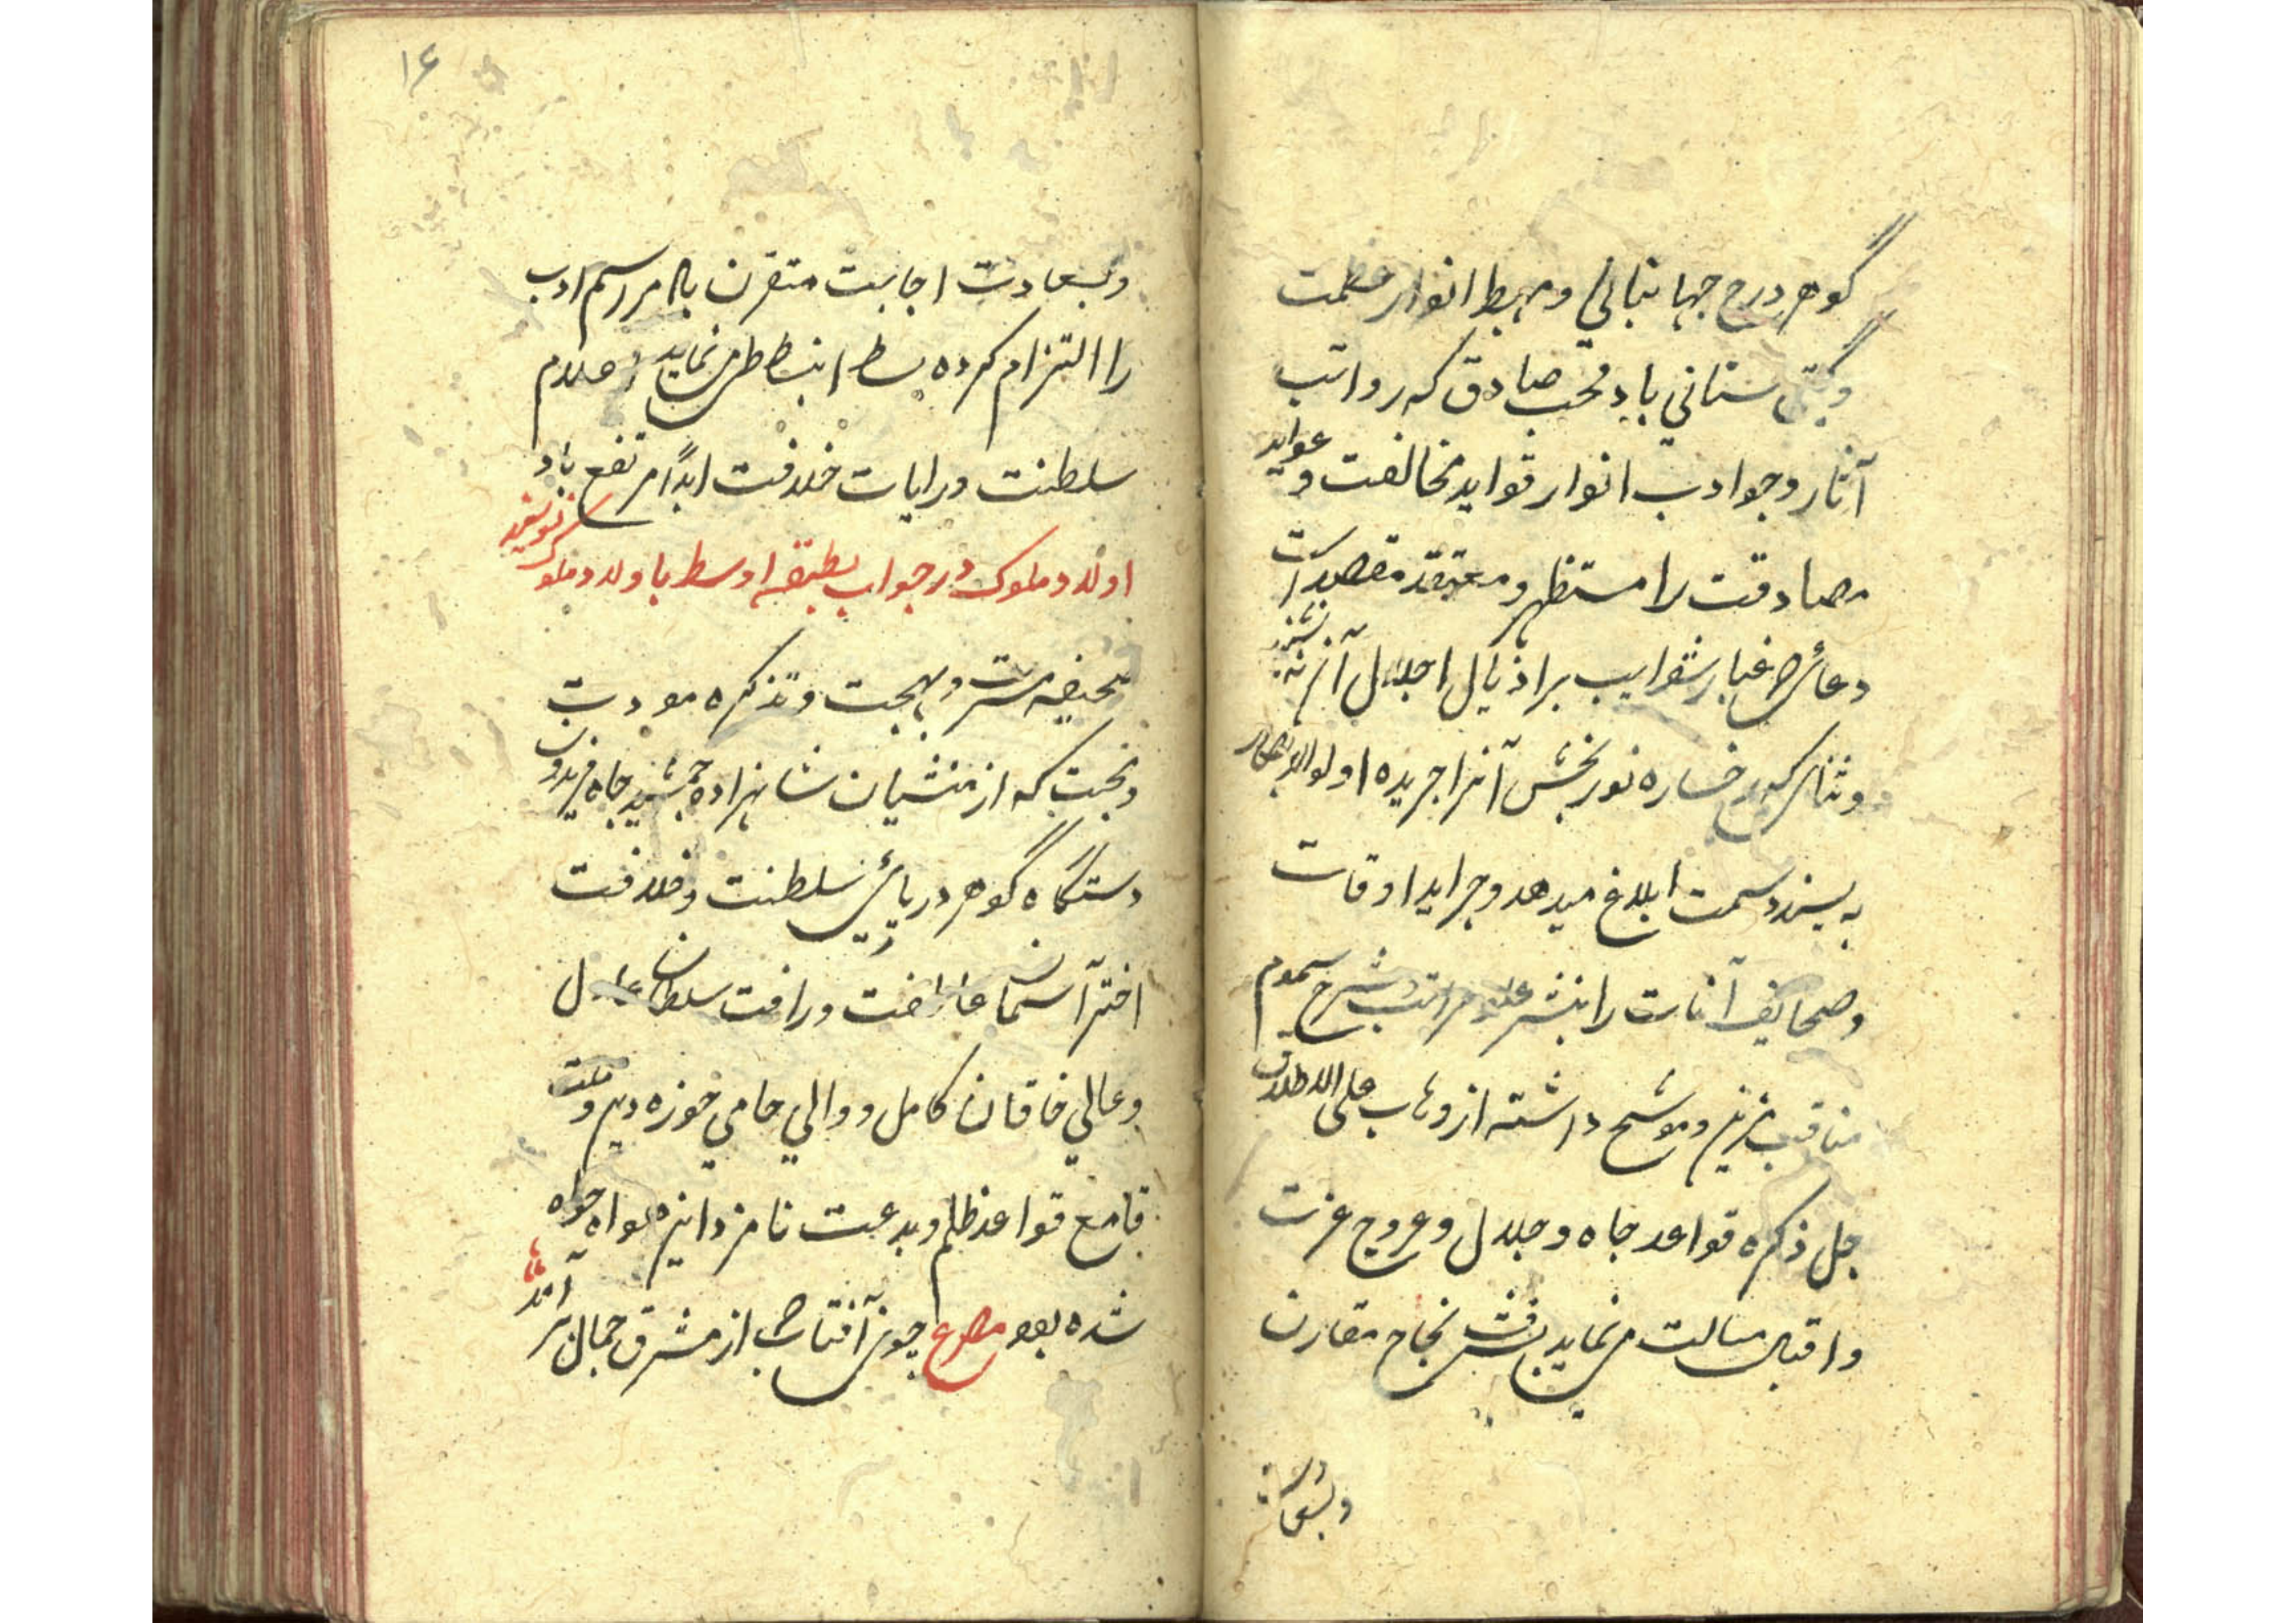 گوهر درج جهانبانی و مهبط انوار عظمت
و گیتی ستانی باد محب صادق که رواتب
آثار و جواذب انوار قواید مخالصت و عواید
مصادقت را مستظهر و معتقد مقصد است
دعائی که غبار شوایب بر اذیال اجلال آن نه نشیند
و ثنائی که رخساره نوربخش آنرا جریده اولو الابصار
به پسندد سمت ابلاغ میدهد و جراید اوقات
و صحایف آنات را بنشر علو مراتب و شرح سموم
مناقب مزین و موشح داشته از وهاب علی الاطلاق
جل ذکره قواعد جاه و جلال و عروج عزت
و اقبال مسالت می‌نماید بشرف نجاح مقارن
و بسعادت
۱۶
و بسعادت اجابت مقترن باد مراسم ادب
را التزام کرده بسط انبساط طی می‌نماید اعلام
سلطنت و رایات خلافت ابداً مرتفع باد
اولاد ملوک در جواب بطبقه اوسط با اولاد ملوک نویسند
صحیفه مسرت و بهجت و تذکره مودت
و محبت که از منشیان شاهزاده جمشید جاه فریدون
دستگاه گوهر دریائی سلطنت و خلافت
اختر آسمان عاطفت و رافت سلطان عادل
و عالی خاقان کامل و والی حامی حوزه دین و ملت
قامع قواعد ظلم و بدعت نامزد این هواه خواه
شده بود مصرع چون آفتاب از مشرق جمال بر آمد